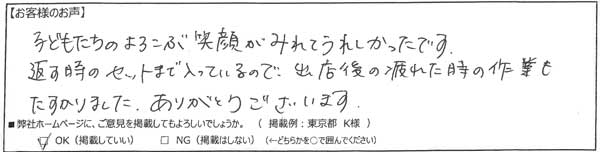 【お客様のお声】
子どもたちのよろこぶ笑顔がみれてうれしかったです.
返す時のセットまで入っているので、出店後の疲れた時の作業も
たすかりました. ありがとうございます.
■弊社ホームページに、ご意見を掲載してもよろしいでしょうか。（掲載例：東京都 K様）
☑ OK（掲載していい） □ NG（掲載はしない）（←どちらかを○で囲んでください）